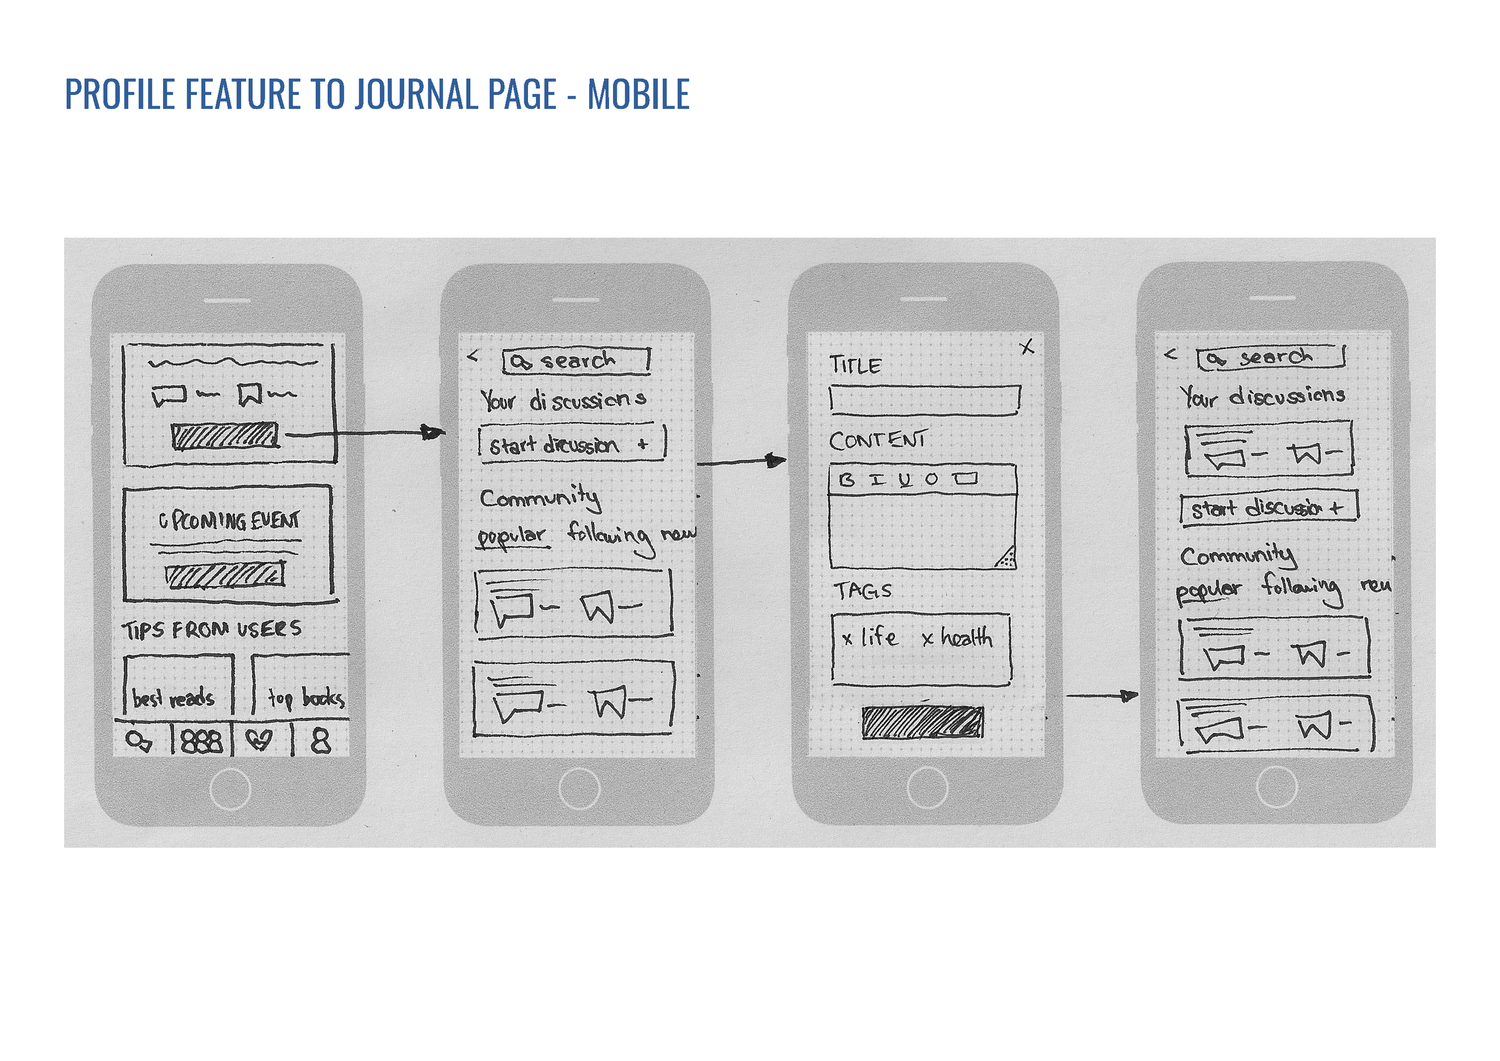 PROFILE FEATURE TO JOURNAL PAGE - MOBILE
UPCOMING EVENT
TIPS FROM USERS
best reads
top books
< search
Your discussions
start dicussion +
Community
popular following new
X
TITLE
CONTENT
B I U
TAGS
x life x health
< search
Your discussions
start discussion +
Community
popular following new